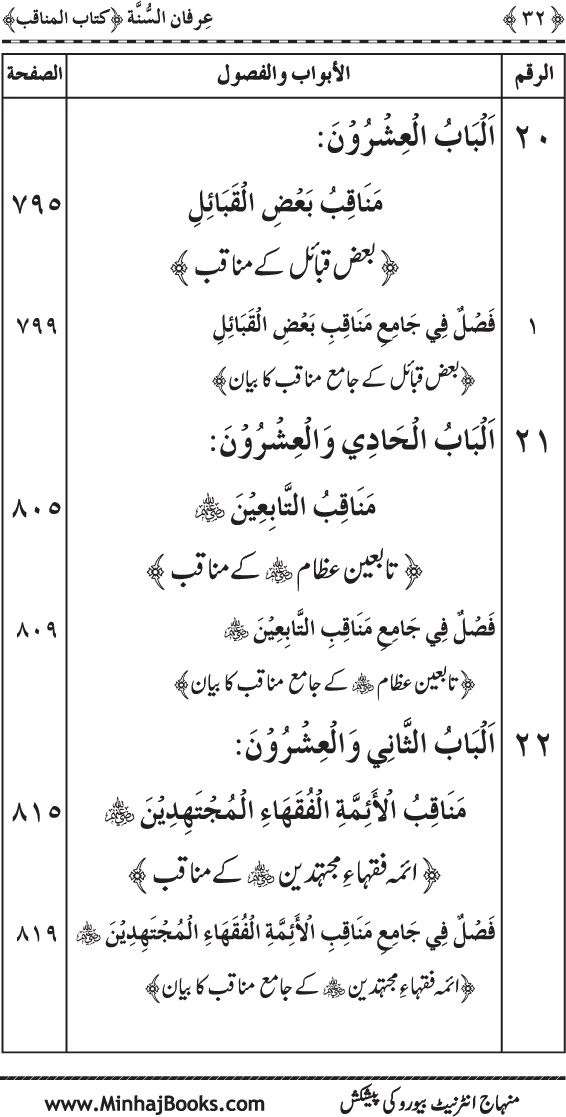 ﴿ ٣٢ ﴾ عِرفان السُّنَّة ﴿كتاب المناقب﴾
الرقم الأبواب والفصول الصفحة
٢٠ اَلْبَابُ الْعِشْرُوْنَ:
مَنَاقِبُ بَعْضِ الْقَبَائِلِ ٧٩٥
﴿بعض قبائل کے مناقب﴾
١ فَصْلٌ فِي جَامِعِ مَنَاقِبِ بَعْضِ الْقَبَائِلِ ٧٩٩
﴿بعض قبائل کے جامع مناقب کا بیان﴾
٢١ اَلْبَابُ الْحَادِي وَالْعِشْرُوْنَ:
مَنَاقِبُ التَّابِعِيْنَ ٨٠٥
﴿تابعین عظام کے مناقب﴾
فَصْلٌ فِي جَامِعِ مَنَاقِبِ التَّابِعِيْنَ ٨٠٩
﴿تابعین عظام کے جامع مناقب کا بیان﴾
٢٢ اَلْبَابُ الثَّانِي وَالْعِشْرُوْنَ:
مَنَاقِبُ الْأَئِمَّةِ الْفُقَهَاءِ الْمُجْتَهِدِيْنَ ٨١٥
﴿ائمہ فقہاءِ مجتہدین کے مناقب﴾
فَصْلٌ فِي جَامِعِ مَنَاقِبِ الْأَئِمَّةِ الْفُقَهَاءِ الْمُجْتَهِدِيْنَ ٨١٩
﴿ائمہ فقہاءِ مجتہدین کے جامع مناقب کا بیان﴾
منہاج انٹرنیٹ بیورو کی پیشکش www.MinhajBooks.com